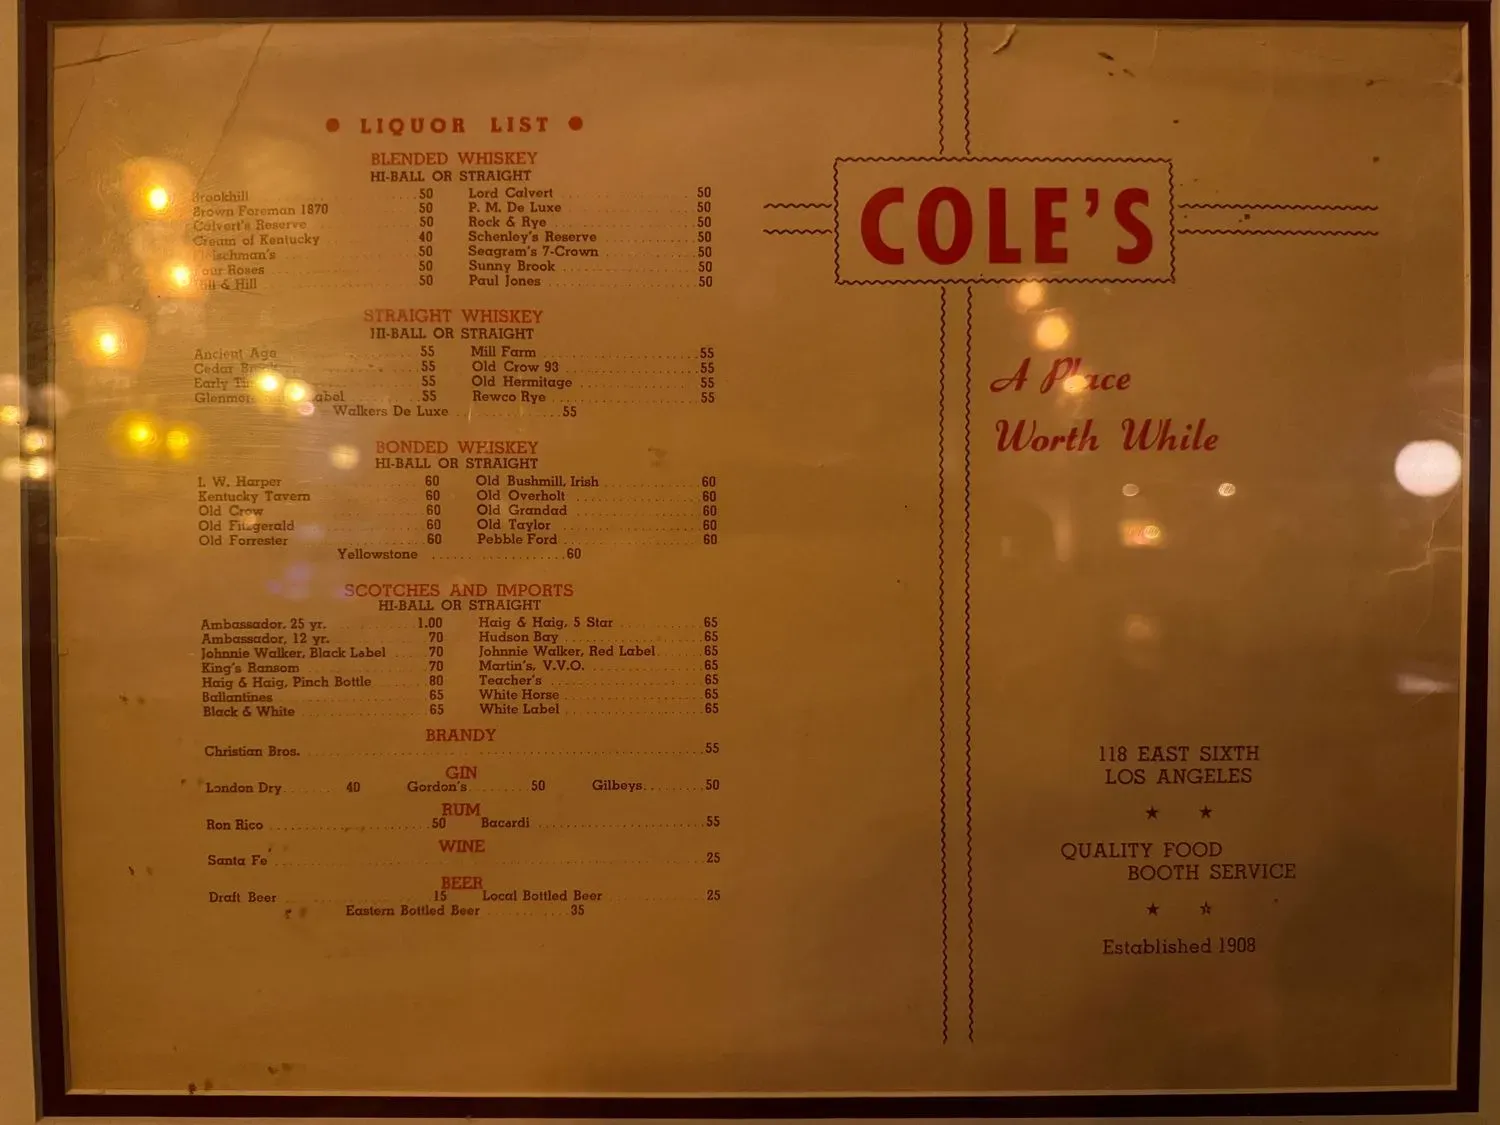 ● LIQUOR LIST ●
BLENDED WHISKEY
HI-BALL OR STRAIGHT
Brookhill 50
Brown Foreman 1870 50
Calvert's Reserve 50
Cream of Kentucky 40
Fleischman's 50
Four Roses 50
Hill & Hill 50
Lord Calvert 50
P. M. De Luxe 50
Rock & Rye 50
Schenley's Reserve 50
Seagram's 7-Crown 50
Sunny Brook 50
Paul Jones 50
STRAIGHT WHISKEY
HI-BALL OR STRAIGHT
Ancient Age 55
Cedar 55
Early 55
Label 55
Mill Farm 55
Old Crow 93 55
Old Hermitage 55
Rewco Rye 55
Walkers De Luxe 55
BONDED WHISKEY
HI-BALL OR STRAIGHT
I. W. Harper 60
Kentucky Tavern 60
Old Crow 60
Old Fitzgerald 60
Old Forrester 60
Old Bushmill, Irish 60
Old Overholt 60
Old Grandad 60
Old Taylor 60
Pebble Ford 60
Yellowstone 60
SCOTCHES AND IMPORTS
HI-BALL OR STRAIGHT
Ambassador, 25 yr. 1.00
Ambassador, 12 yr. 70
Johnnie Walker, Black Label 70
King's Ransom 70
Haig & Haig, Pinch Bottle 80
Ballantines 65
Black & White 65
Haig & Haig, 5 Star 65
Hudson Bay 65
Johnnie Walker, Red Label 65
Martin's, V.V.O. 65
Teacher's 65
White Horse 65
White Label 65
BRANDY
Christian Bros. 55
GIN
London Dry 40 Gordon's 50 Gilbeys 50
RUM
Ron Rico 50 Bacardi 55
WINE
Santa Fe 25
BEER
Draft Beer 15 Local Bottled Beer 25
Eastern Bottled Beer 35
COLE'S
A Place
Worth While
118 EAST SIXTH
LOS ANGELES
★ ★
QUALITY FOOD
BOOTH SERVICE
★ ☆
Established 1908